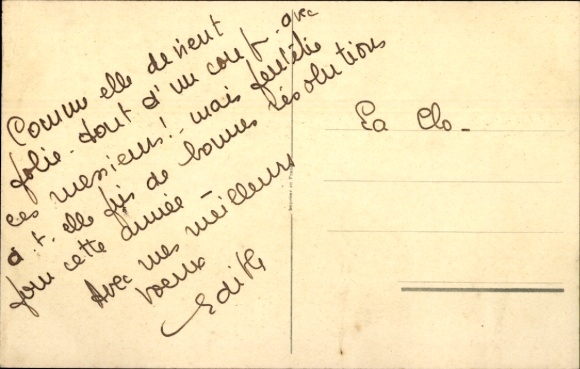 Comme elle devient
folie - tout d'un coup - avec
ces messieurs! - mais peut être
a.t.elle pris de bonnes résolutions
pour cette année -
Avec mes meilleurs
voeux
Edith
La Clo -